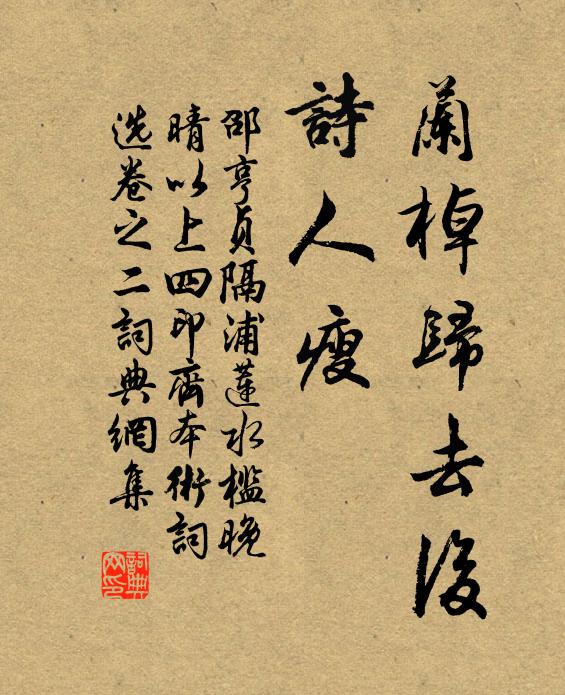 蘭棹歸去後
詩人瘦
邵亨貞隔浦蓮水檻晚
晴以上四印齋本術詞
選卷之二詞典網集
詞典
网印